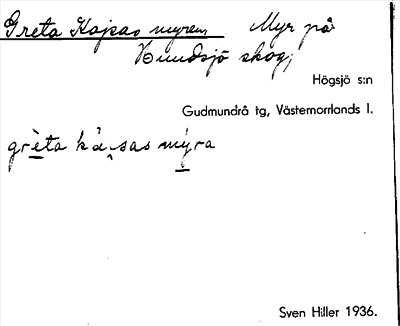 Greta Kajsas myren, Myr på
skog,
Högsjö s:n
Gudmundrå tg, Västernorrlands l.
grèta kà sas mýra
Sven Hiller 1936.